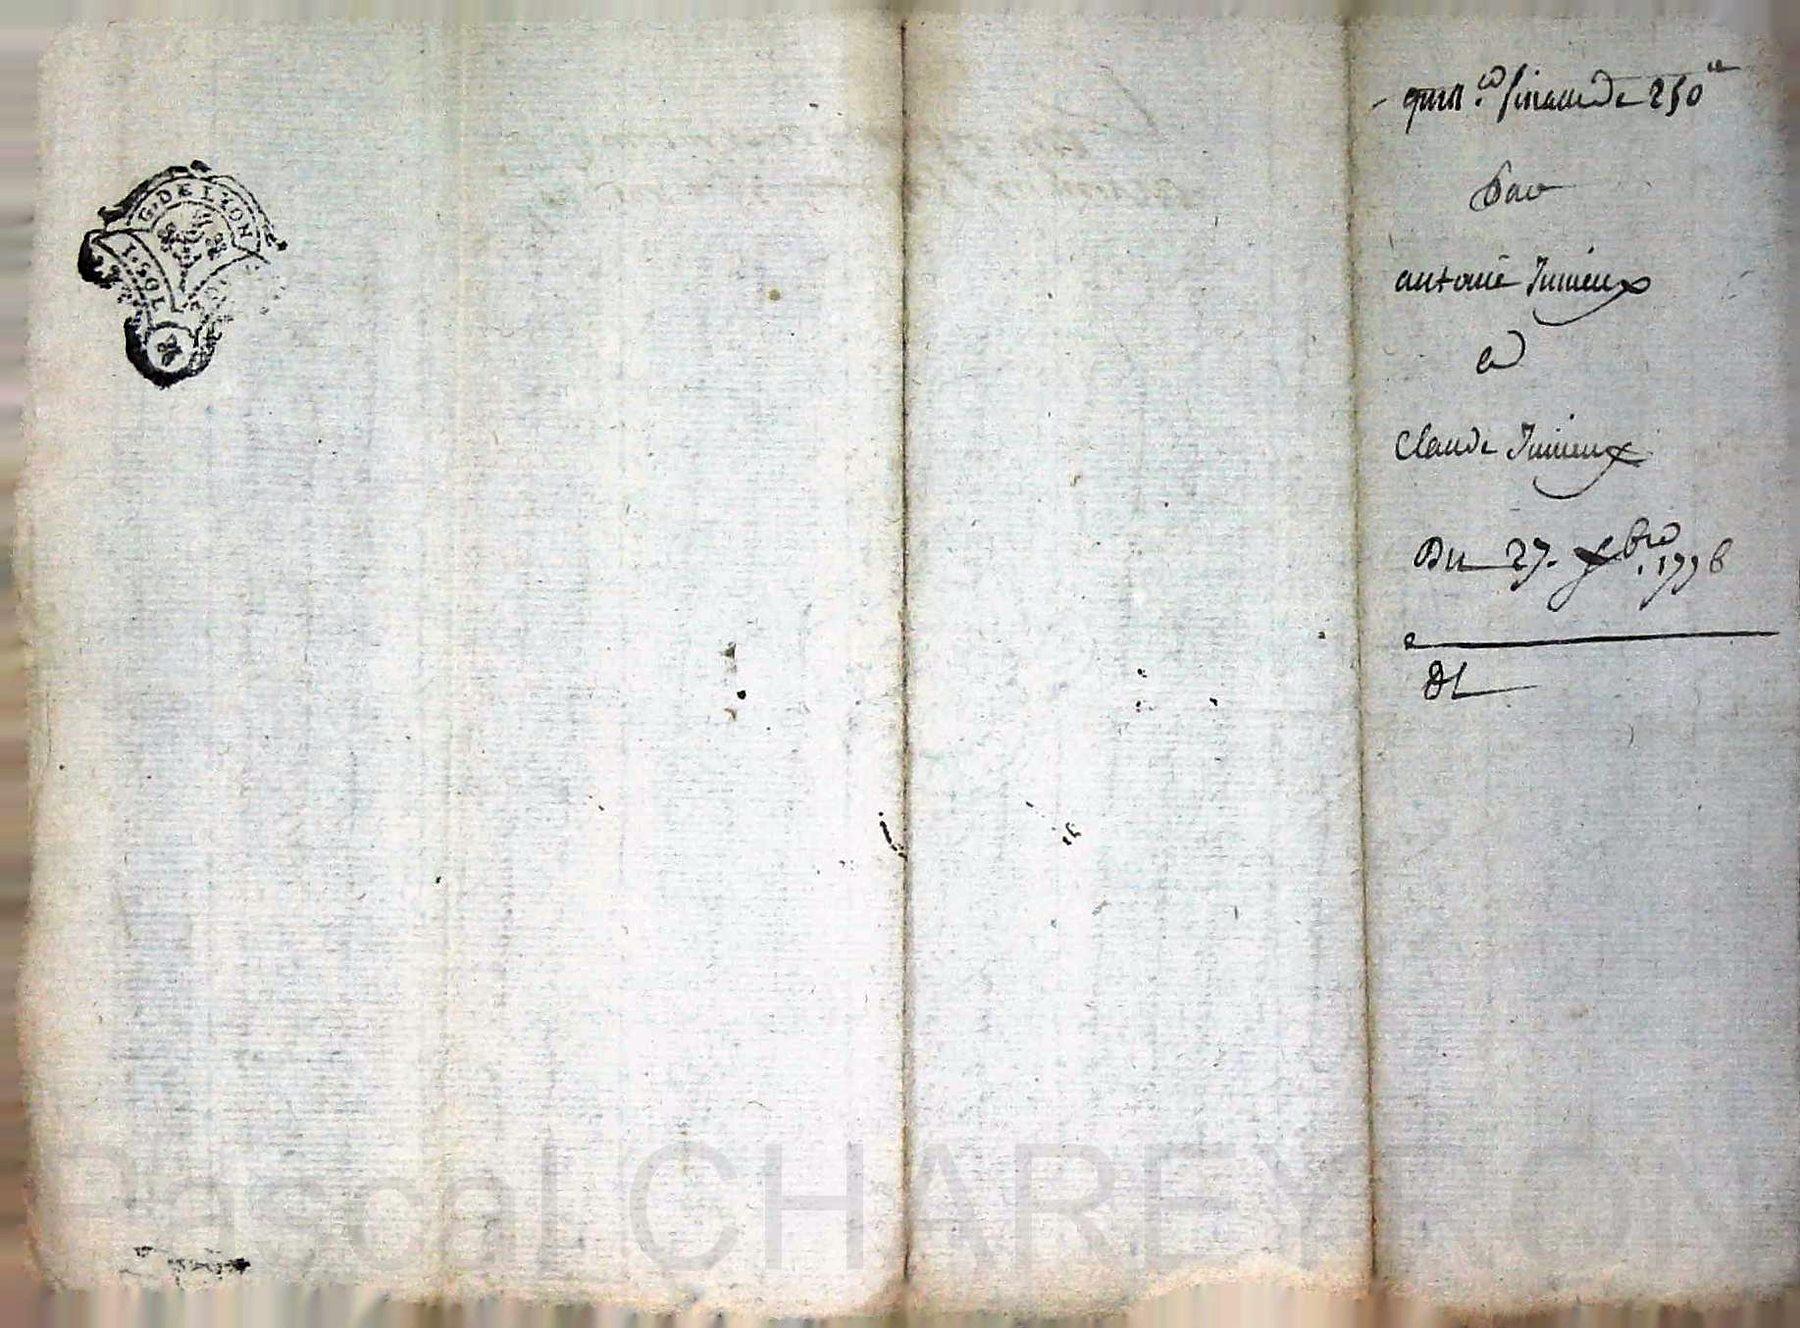 G. DE LYON
1. SOL
quitt.ce finalle de 250 ll
Par
antoine Jumeux
a
Claude Jumeux
Du 27. xbre. 1776
DL
Pascal CHAREYRON